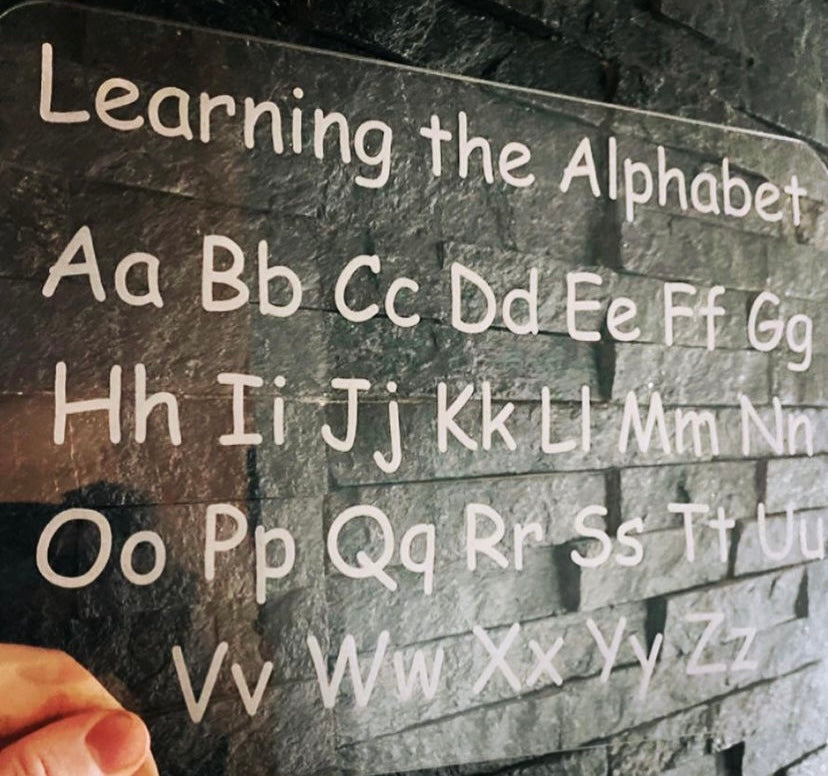 Learning the Alphabet
Aa Bb Cc Dd Ee Ff Gg
Hh Ii Jj Kk Ll Mm Nn
Oo Pp Qq Rr Ss Tt Uu
Vv Ww Xx Yy Zz